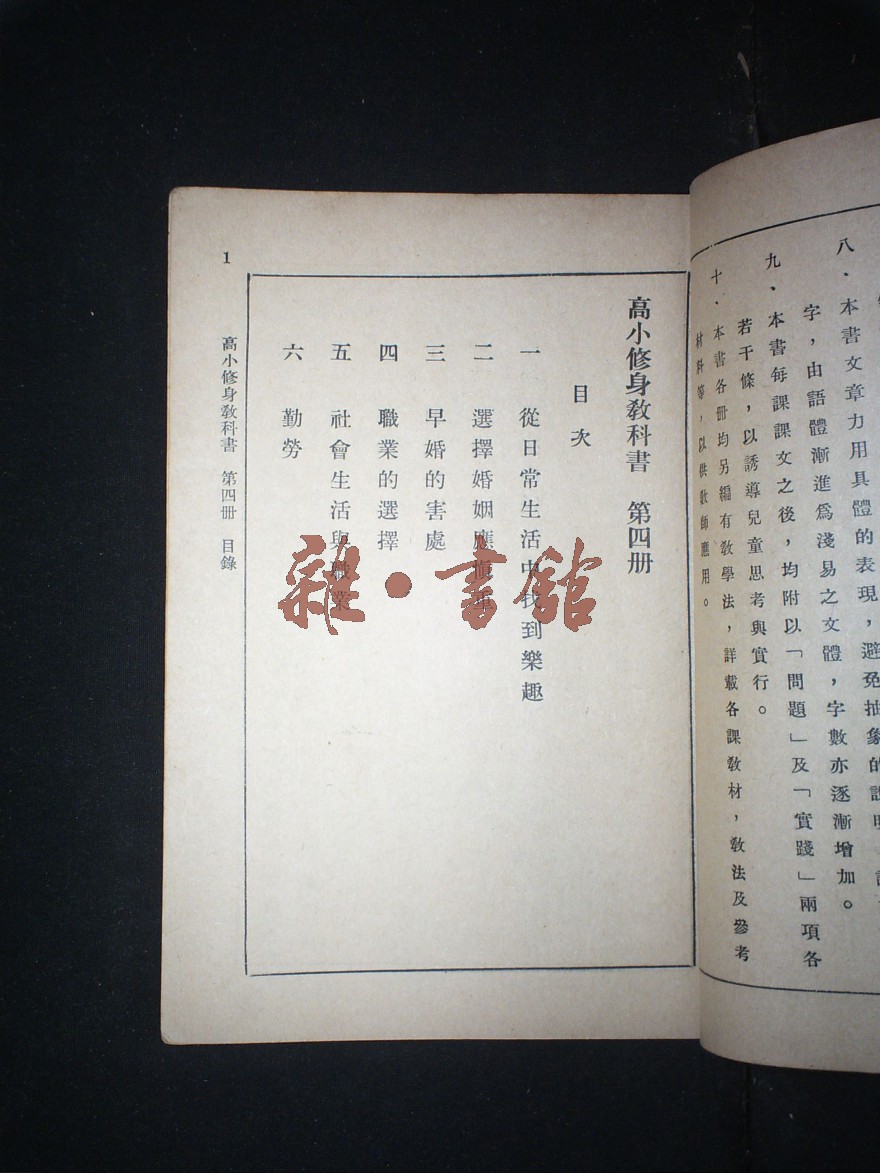 八、本書文章力用具體的表現，避免抽象的說明，
字，由語體漸進爲淺易之文體，字數亦逐漸增加。
九、本書每課課文之後，均附以「問題」及「實踐」兩項各
若干條，以誘導兒童思考與實行。
十、本書各册均另編有敎學法，詳載各課敎材，敎法及參考
材料等，以供敎師應用。
高小修身敎科書　第四册
目次
一　從日常生活中找到樂趣
二　選擇婚姻應慎重
三　早婚的害處
四　職業的選擇
五　社會生活與職業
六　勤勞
1
高小修身敎科書　第四册　目錄
雜・書館